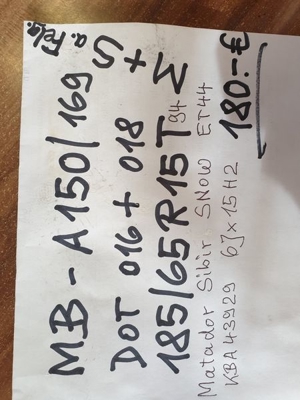 MB - A150/169 a. Felg.
DOT 016 + 018 M + S
185/65 R15 T 94
Matador Sibir SNOW ET44
KBA 43929 6Jx15H2 180.-€